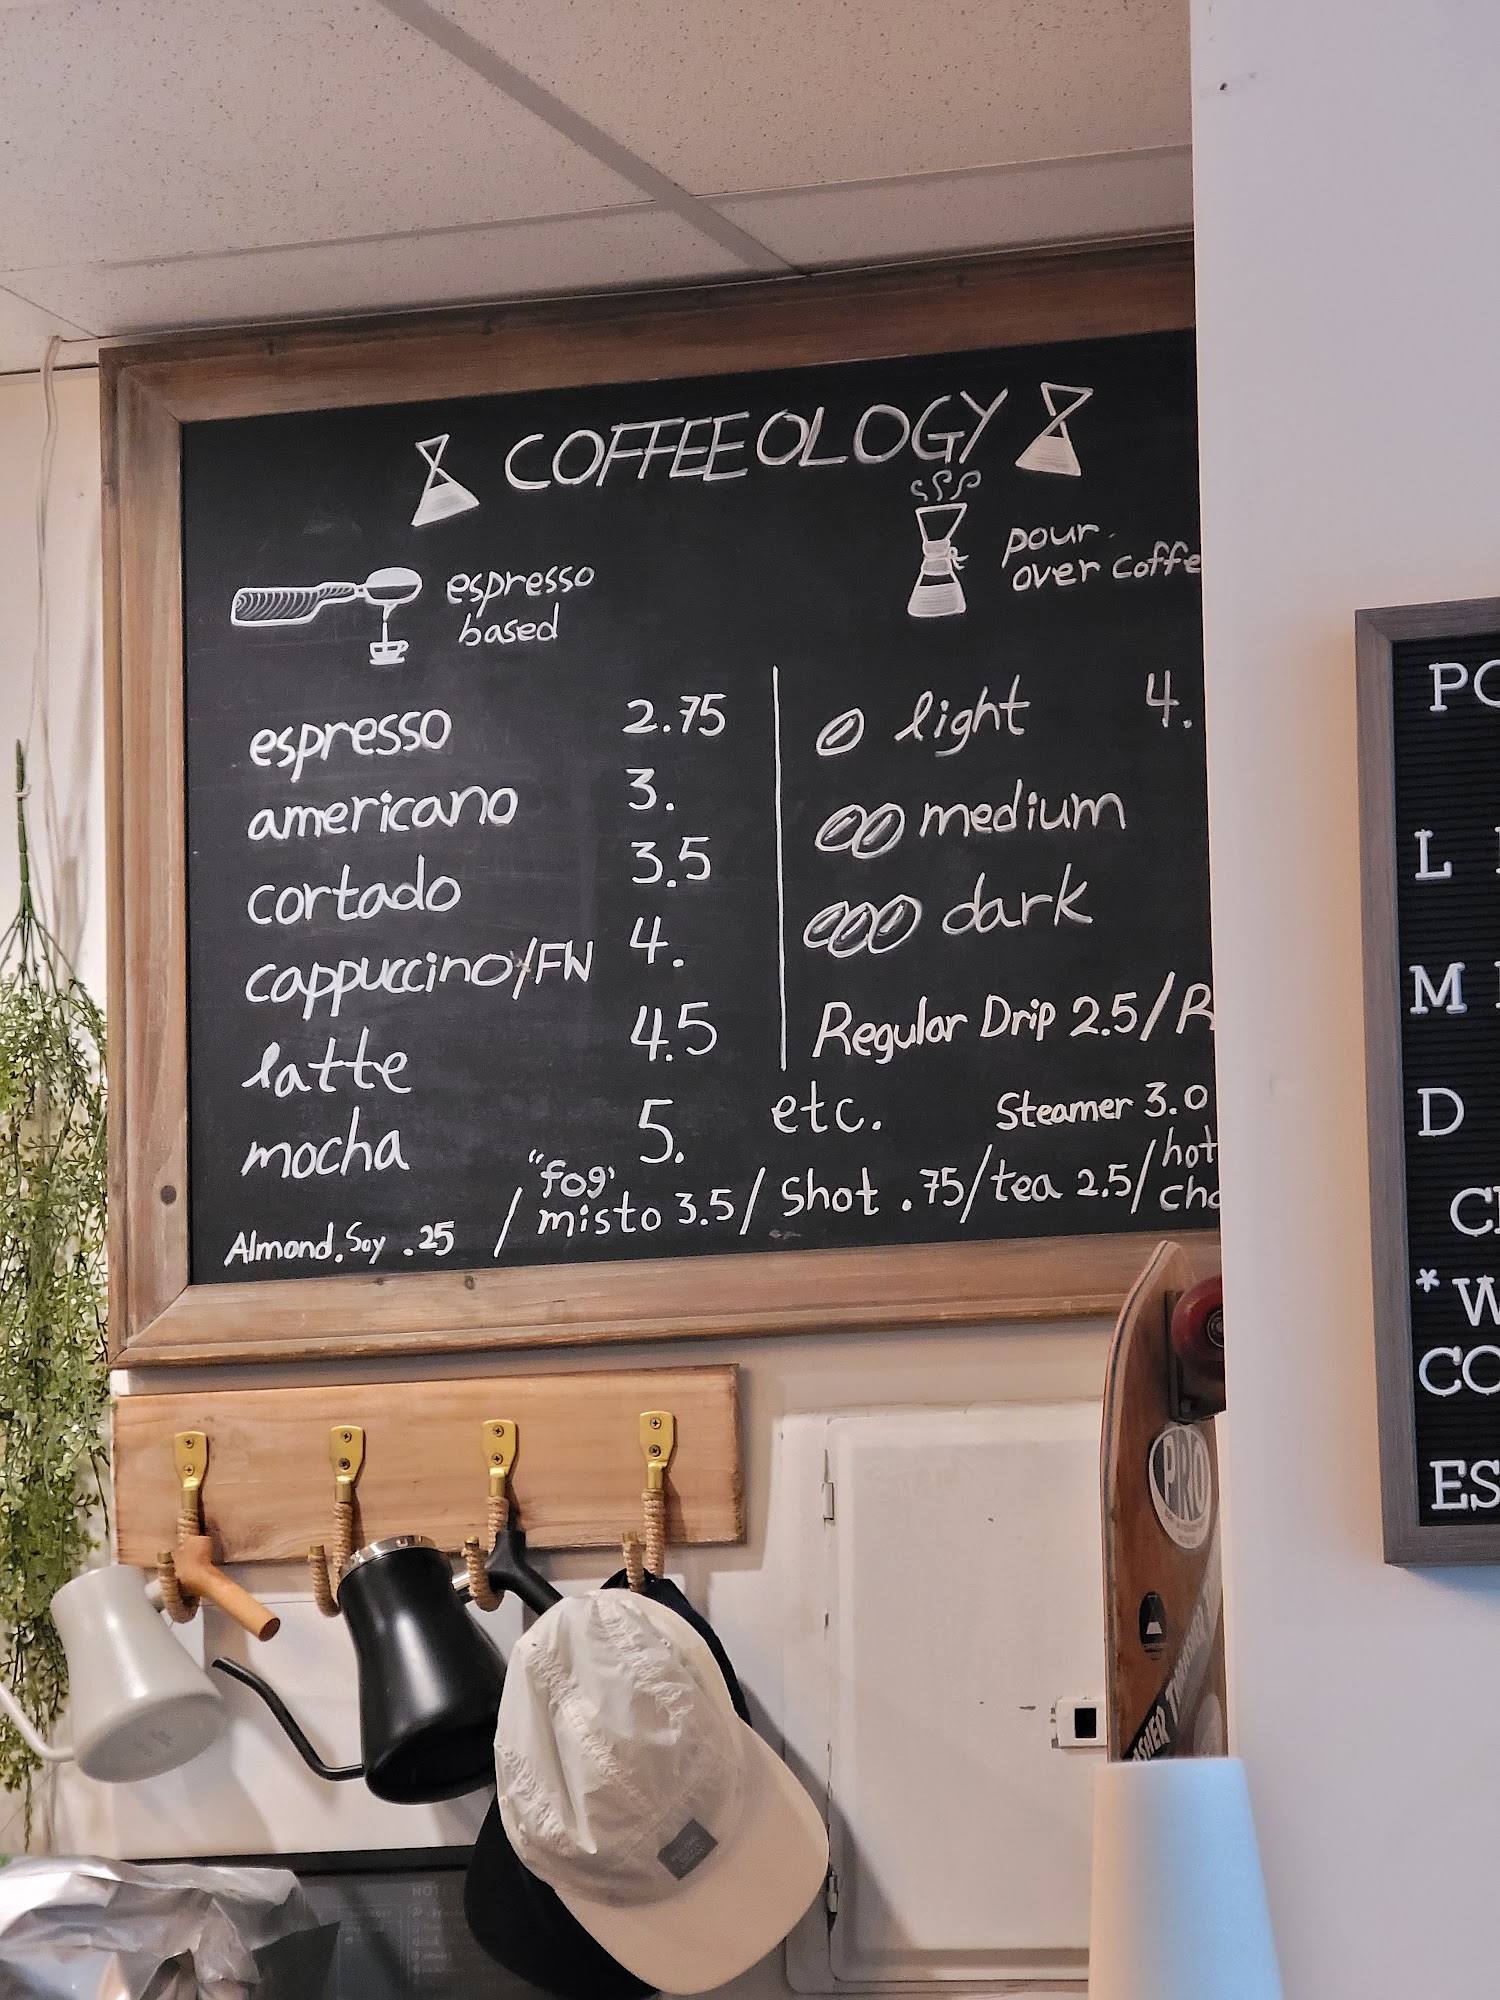 COFFEEOLOGY
espresso
based
pour
over coffe
espresso 2.75
americano 3.
cortado 3.5
cappuccino/FW 4.
latte 4.5
mocha 5.
light 4.
medium
dark
Regular Drip 2.5/R
etc. Steamer 3.0
Almond, Soy .25 / "fog" misto 3.5/ shot .75/tea 2.5/ hot cho
PRO
PO
L
M
D
CH
*W
CO
ES